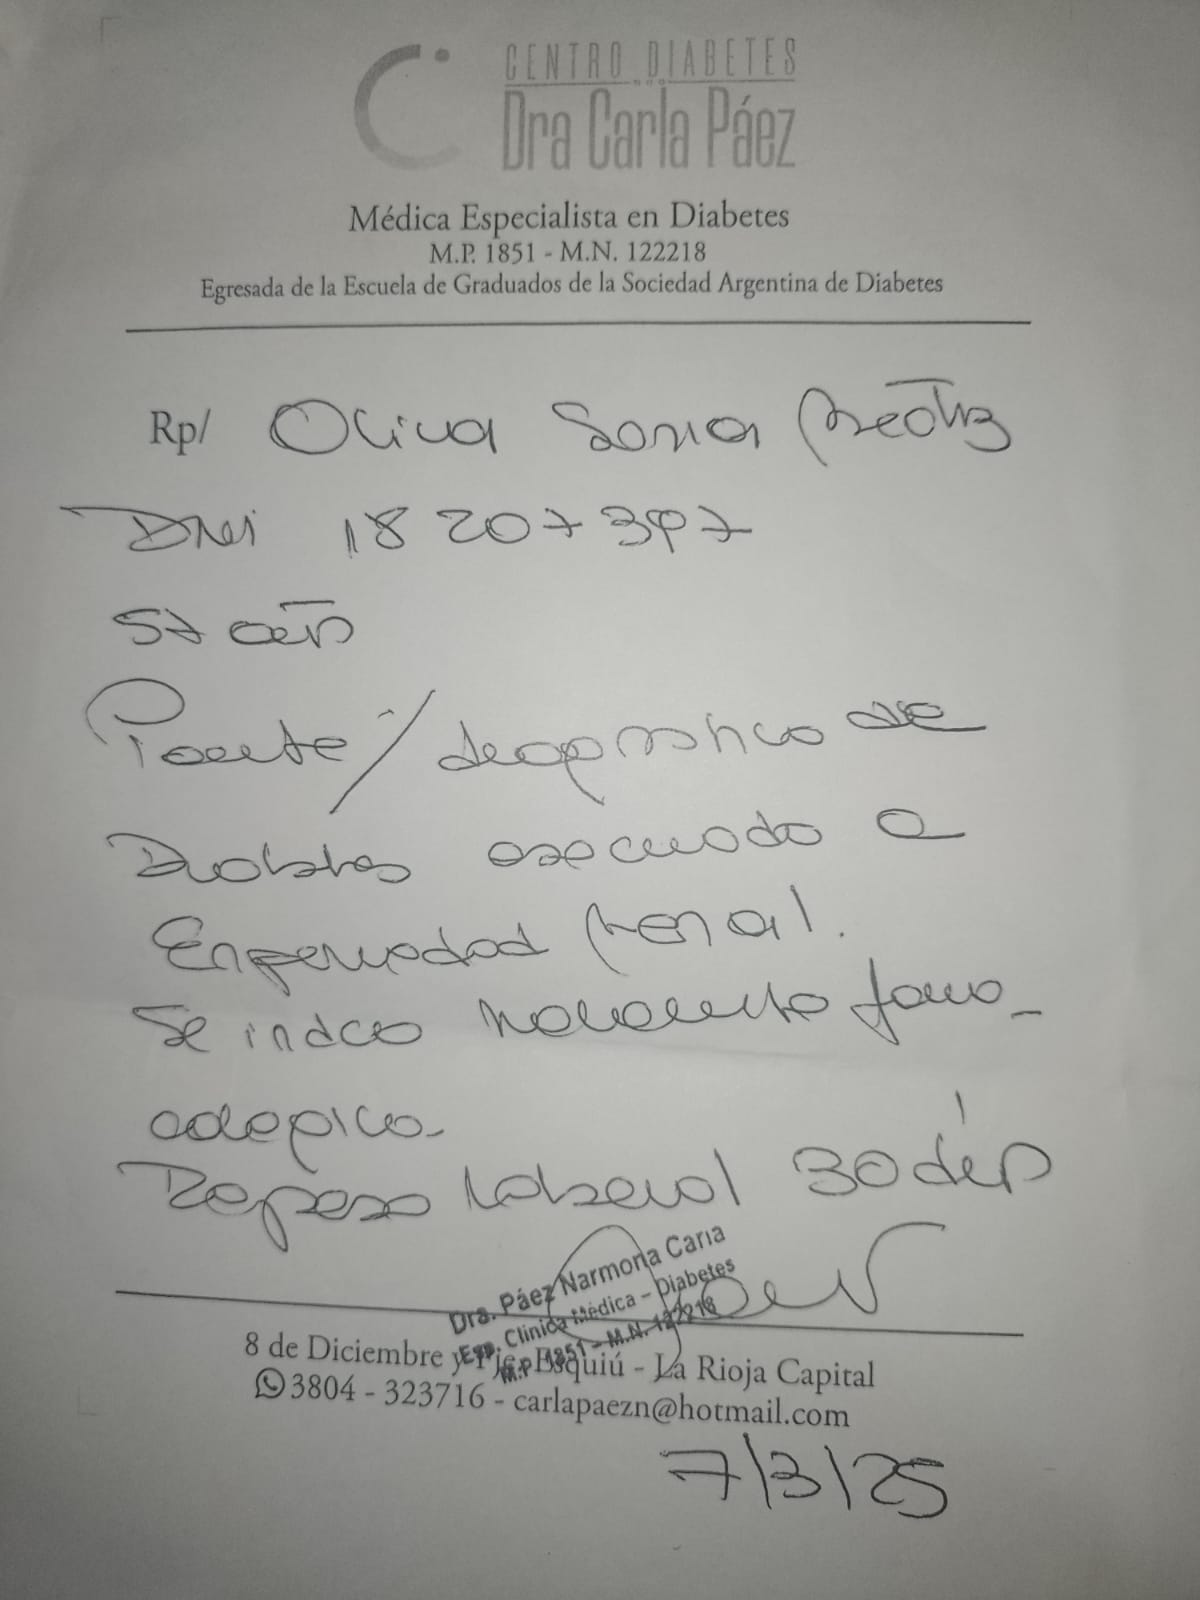 CENTRO DIABETES
Dra Carla Páez
Médica Especialista en Diabetes
M.P. 1851 - M.N. 122218
Egresada de la Escuela de Graduados de la Sociedad Argentina de Diabetes
Rp/ Oliva Sonia Beatriz
DNI 18207397
57 años
Paciente / diagnostico de
Diabetes asociado a
Enfermedad Renal.
Se indica tratamiento farma-
cologico.
Reposo laboral 30 días
Dra. Páez Narmona Carla
Esp. Clínica Médica – Diabetes
M.P. 1851 - M.N. 122218
8 de Diciembre y Pje. Esquiú - La Rioja Capital
3804 - 323716 - carlapaezn@hotmail.com
7/3/25